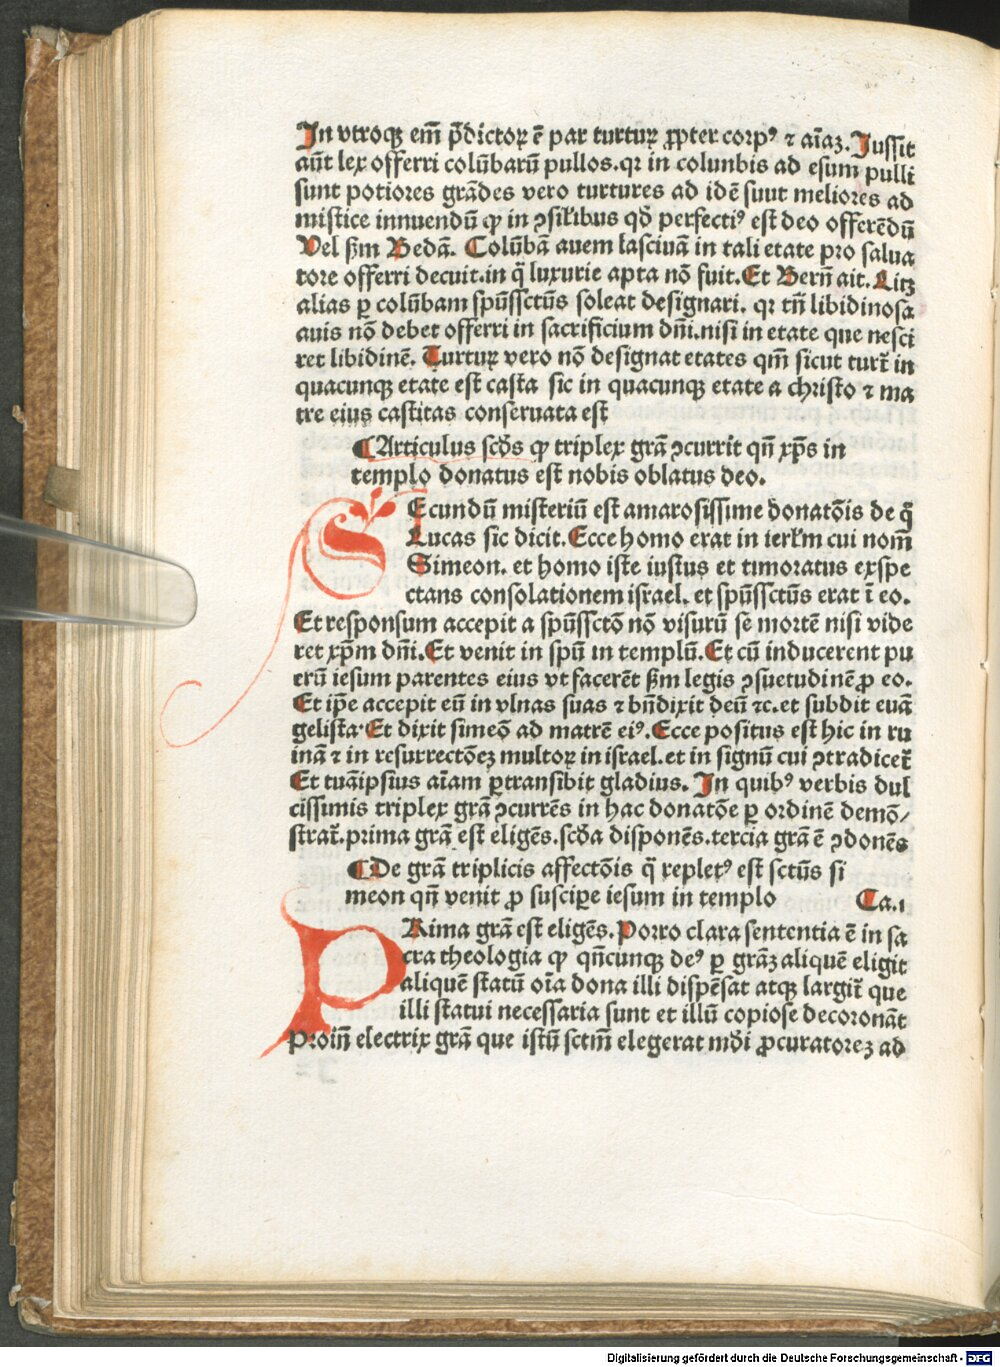 In vtroqꝫ em̄ p̄dictoꝝ ē par turtuꝝ ꝓpter corpꝰ ⁊ aīaꝫ. Iussit
aūt lex offerri colūbarū pullos. qꝛ in colunbis ad esum pulli
sunt potiores grādes vero turtures ad idē suut meliores ad
mistice innuendū ꝙ in ↄsil̄ibus qḋ perfectiꝰ est deo offerēdū
Vel ẜm Bedā. Colūbā auem lasciuā in tali etate pro salua
tore offerri decuit. in q̄ luxurie apta nō fuit. Et Berṅ ait. Litꝫ
alias ꝑ colūbam spūssctūs soleat designari. qꝛ tn̄ libidinosa
auis nō debet offerri in sacrificium dn̄i. nisi in etate que nesci
ret libidinē. Turtuꝝ vero nō designat etates qm̄ sicut turt̄ in
quacunqꝫ etate est casta sic in quacunqꝫ etate a christo ⁊ ma
tre eius castitas conseruata est
¶Articulus scḋs ꝙ triplex grā ↄcurrit qn̄ xp̄s in
templo donatus est nobis oblatus deo.
SEcundū misteriū est amarosissime donatōis de q̄
Lucas sic dicit. Ecce homo erat in ierl̄m cui nom̄
Simeon. et homo iste iustus et timoratus exspe
ctans consolationem israel. et spūssctūs erat ī eo.
Et responsum accepit a spūssctō nō visurū se mortē nisi vide
ret xp̄m dn̄i. Et venit in spū in templū. Et cū inducerent pu
erū iesum parentes eius vt facerēt ẜm legis ↄsuetudinē ꝓ eo.
Et ip̄e accepit eū in vlnas suas ⁊ bn̄dixit deū ⁊c. et subdit euā
gelista. Et dixit simeō ad matrē eiꝰ. Ecce positus est hic in ru
inā ⁊ in resurrectōeꝫ multoꝝ in israel. et in signū cui ↄtradicet̄
Et tuāipsius aīam ꝑtransibit gladius. In quibꝰ verbis dul
cissimis triplex grā ↄcurrēs in hac donatōe ꝑ ordinē demō/
strat̄. prima grā est eligēs. scḋa disponēs. tercia grā ē ↄdonēs
¶De grā triplicis affectōis q̄ repletꝰ est sctūs si
meon qn̄ venit ꝓ suscipe iesum in templo Ca.1
PRima grā est eligēs. Porro clara sententia ē in sa
cra theologia ꝙ qn̄cunqꝫ deꝰ ꝑ grāꝫ aliquē eligit
aliquē statū oīa dona illi dispēsat atqꝫ largit̄ que
illi statui necessaria sunt et illū copiose decoronāt
Proin̄ electrix grā que istū sctm̄ elegerat mḋi ꝓcuratoreꝫ ad
Digitalisierung gefördert durch die Deutsche Forschungsgemeinschaft - DFG